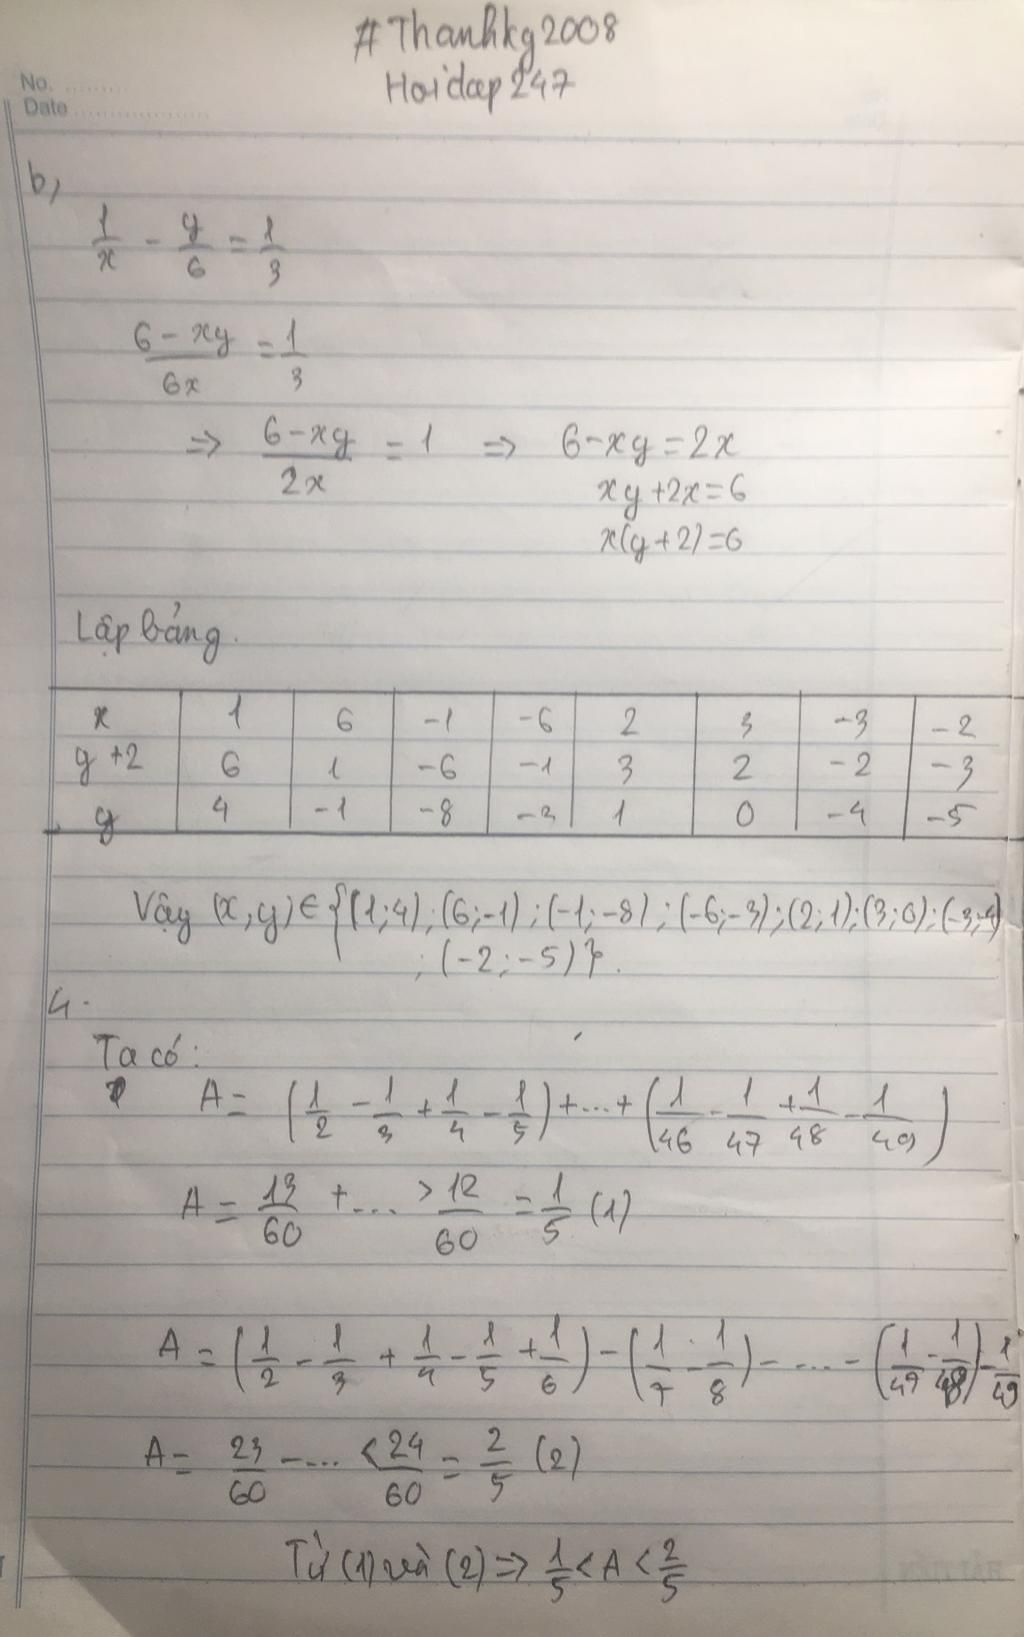 #Thanhkg2008
Hoidap247
No. ..........
Date ....................
b,
1/x - y/6 = 1/3
(6-xy)/6x = 1/3
=> (6-xy)/2x = 1 => 6-xy=2x
xy+2x=6
x(y+2)=6
Lập bảng.
x 1 6 -1 -6 2 3 -3 -2
y+2 6 1 -6 -1 3 2 -2 -3
y 4 -1 -8 -3 1 0 -4 -5
Vậy (x,y)∈{(1;4);(6;-1);(-1;-8);(-6;-3);(2;1);(3;0);(-3;-4)
;(-2;-5)}.
4.
Ta có:
A= (1/2 - 1/3 + 1/4 - 1/5)+...+(1/46 - 1/47 + 1/48 - 1/49)
A = 13/60 +... > 12/60 = 1/5 (1)
A = (1/2 - 1/3 + 1/4 - 1/5 + 1/6) - (1/7 - 1/8) - .... - (1/47 - 1/48) - 1/49
A = 23/60 -.... < 24/60 = 2/5 (2)
Từ (1) và (2) => 1/5 < A < 2/5